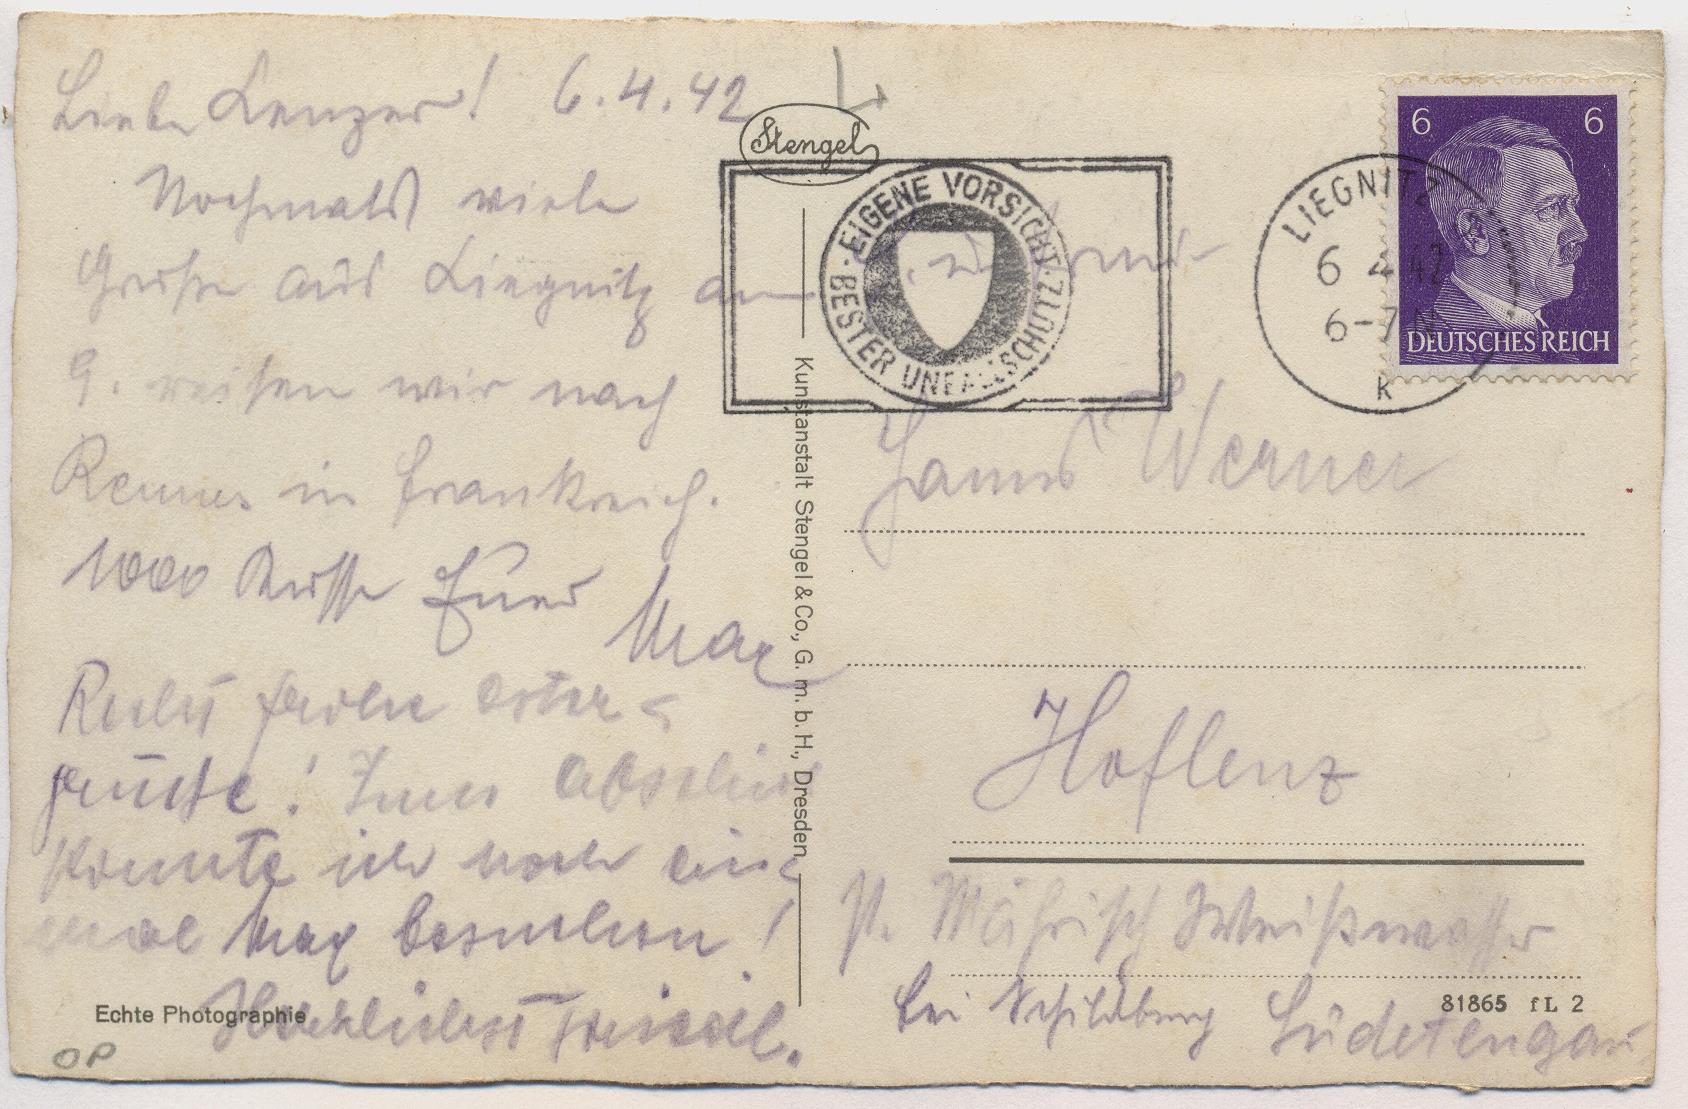 Liebe Lenzer! 6.4.42
Nochmals viele
Grüße aus Liegnitz am
9. reisen wir nach
Rennes in Frankreich.
1000 Küsse Euer
Max
Recht frohe Oster-
Zum Abschied
konnte ich noch ein-
mal Max besuchen!
Herzlichst
Echte Photographie
OP
Stengel
Kunstanstalt Stengel & Co., G. m. b. H., Dresden
EIGENE VORSICHT · BESTER UNFALLSCHUTZ ·
LIEGNITZ
6 4 42
6-7 N
K
6 6
DEUTSCHES REICH
Hanns Werner
Hoflenz
P. Mährisch Weißwasser
bei Schildberg Sudetengau
81865 fL 2